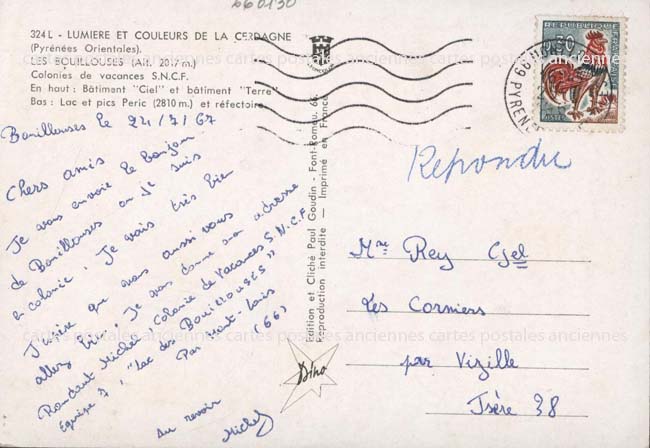 660130
324 L - LUMIERE ET COULEURS DE LA CERDAGNE
(Pyrénées Orientales).
LES BOUILLOUSES (Alt. 2017 m.)
Colonies de vacances S.N.C.F.
En haut : Bâtiment "Ciel" et bâtiment "Terre"
Bas : Lac et pics Peric (2810 m.) et réfectoire
Bouillouses le 24/7/67
Chers amis
Je vous envoie le bonjour
de Bouillouses ou je suis
en colonie. Je vais très bien
J'espère que vous aussi vous
allez bien. Je vous donne mon adresse
Michel "Colonie de Vacances S.N.C.F.
Equipe 7, "Lac des Bouillouses"
Par Mont-Louis
(66)
Au revoir
Michel
Edition et Cliché Paul Goudin - Font-Romeu, 66.
Reproduction interdite — Imprimé en France
Dino
REPUBLIQUE
0,30
FRANCAISE
POSTES
66 PYRENEES
Repondu
Mr Rey
Les Cormiers
par Vizille
Isère 38
cartes postales anciennes cartes postales anciennes cartes postales anciennes